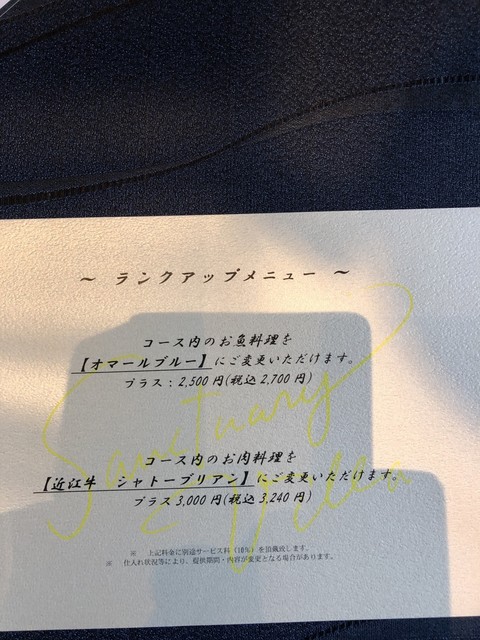 ～ ランクアップメニュー ～
コース内のお魚料理を
【オマールブルー】にご変更いただけます。
プラス：2,500円(税込2,700円)
コース内のお肉料理を
【近江牛　シャトーブリアン】にご変更いただけます。
プラス3,000円(税込3,240円)
※　上記料金に別途サービス料（10％）を頂戴致します。
※　仕入れ状況等により、提供期間・内容が変更となる場合があります。
Sanctuary
Villa